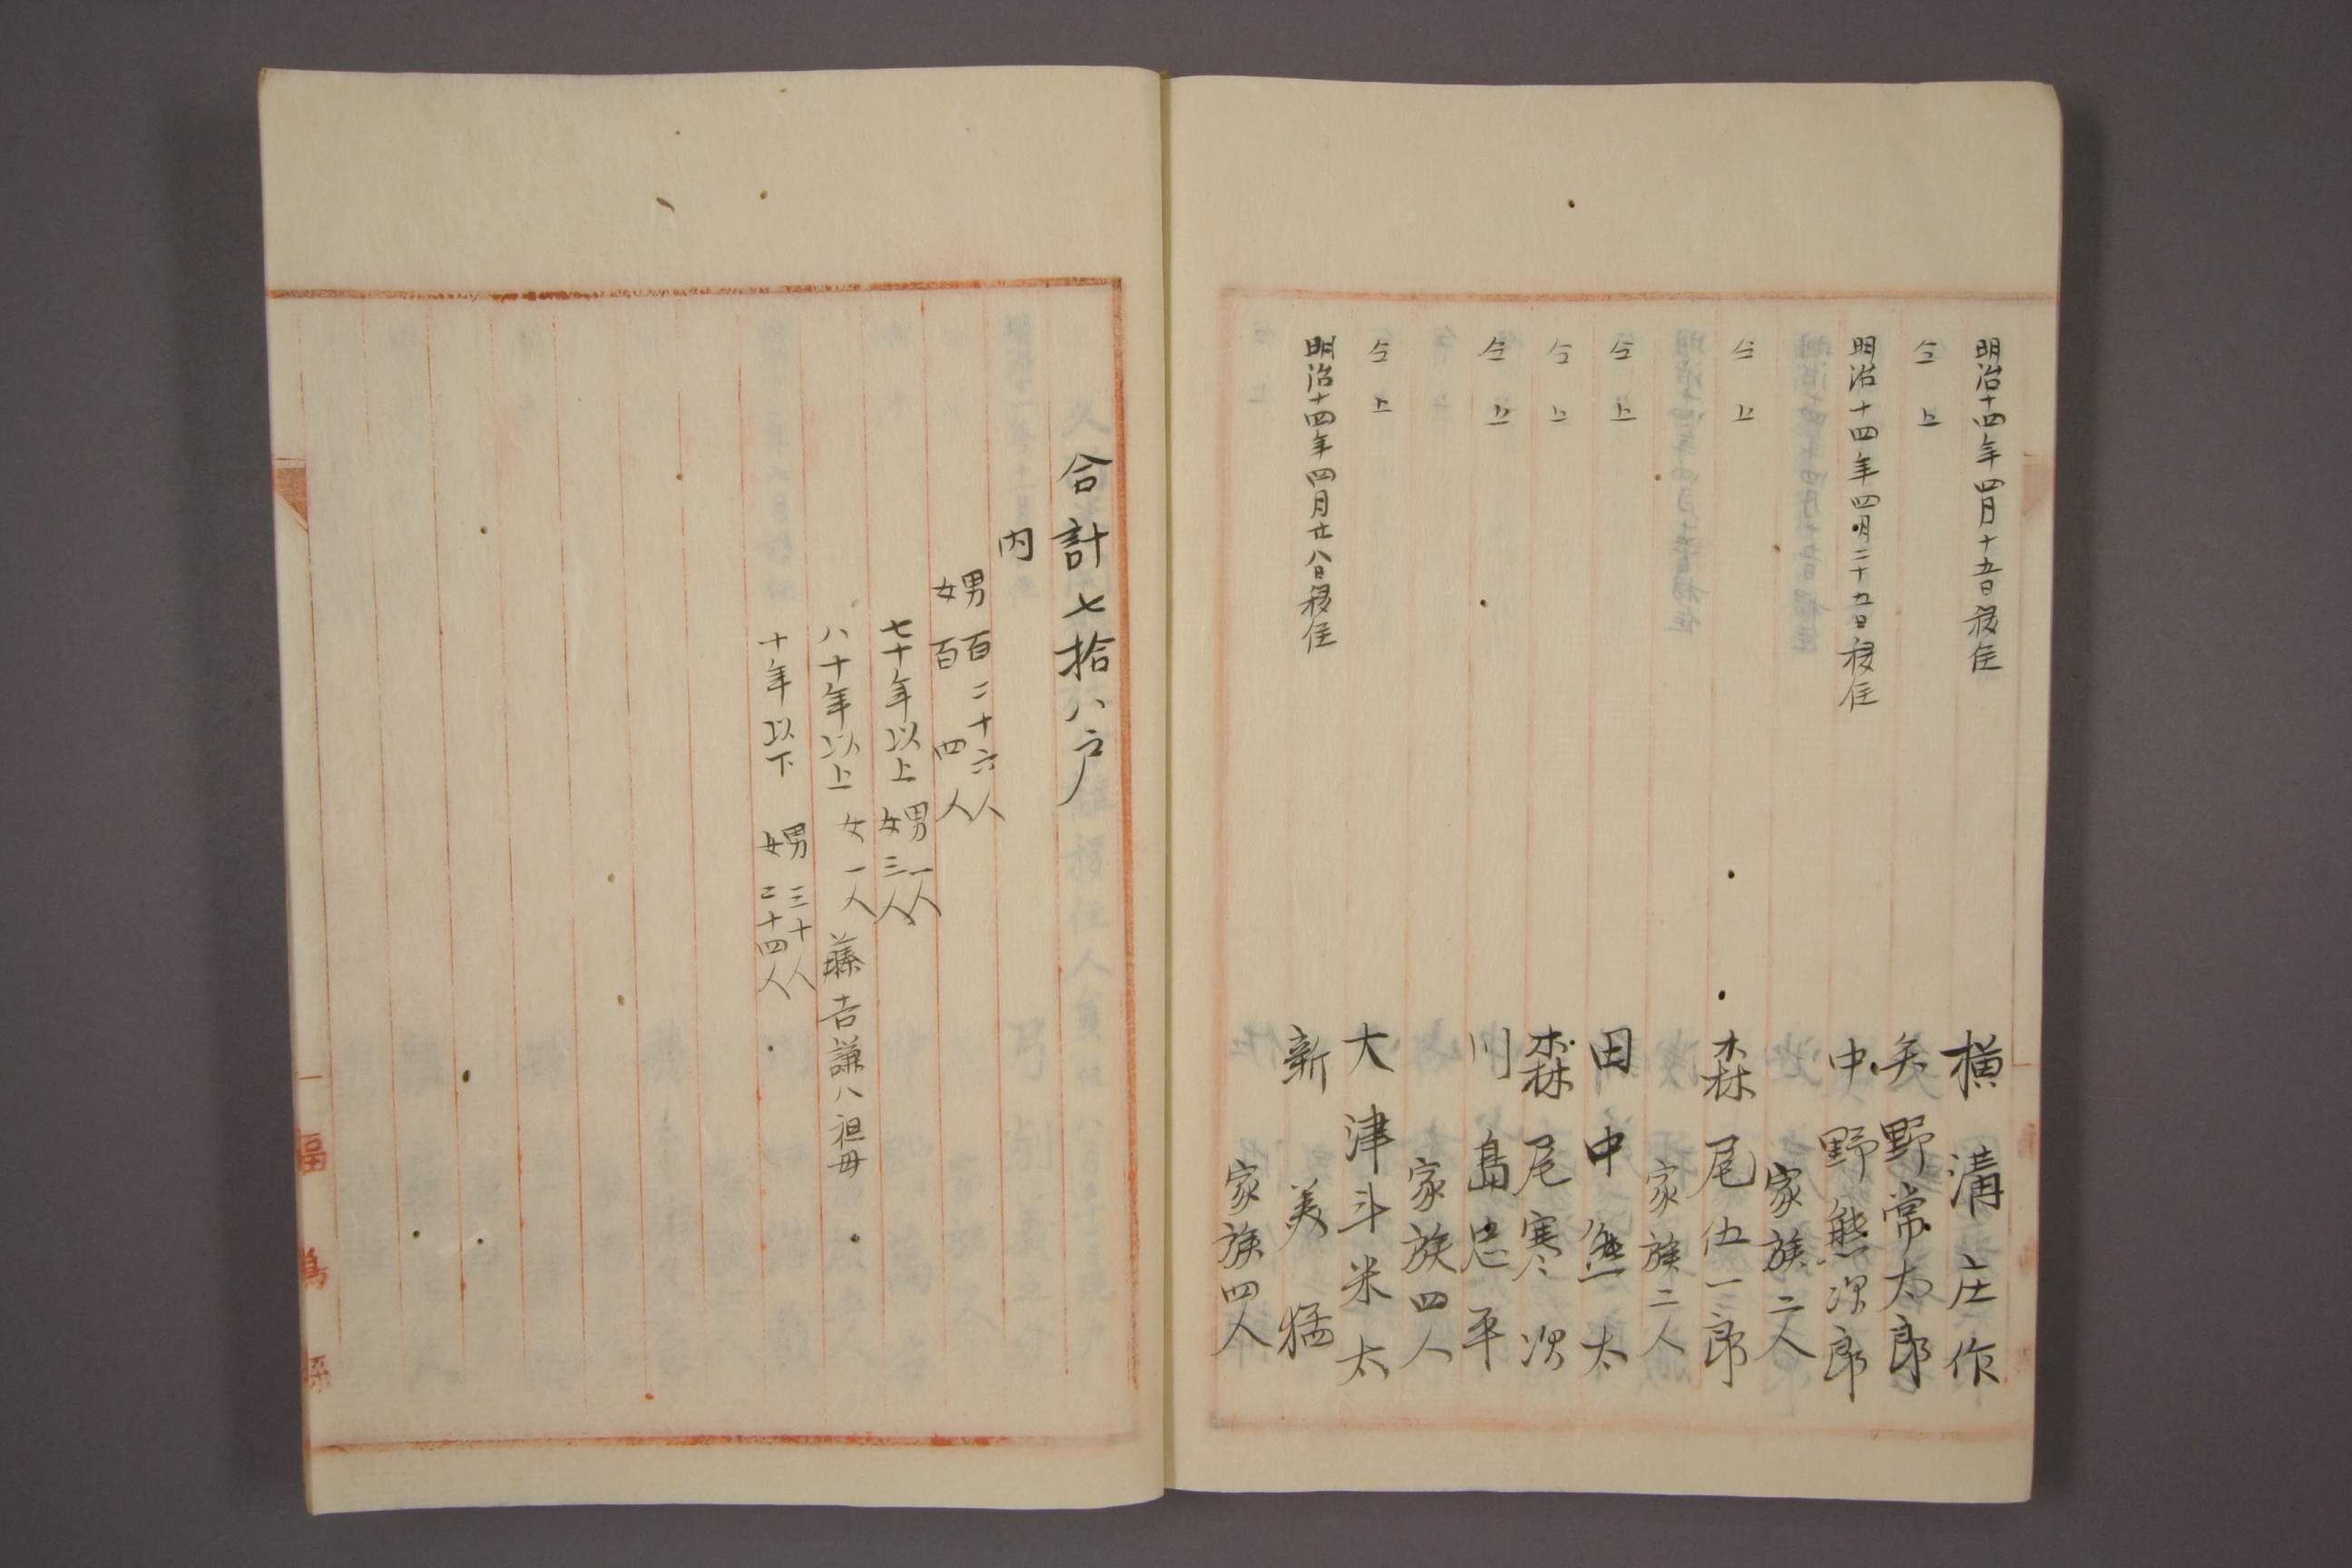 明治十四年四月十五日移住 横溝庄作
仝上 矢野常太郎
明治十四年四月二十九日移住 中野熊次郎
家族二人
仝上 森尾伍一郎
家族二人
仝上 田中無一太
仝上 森尾寒次
仝上 川島忠平
家族四人
仝上 大津斗米太
明治十四年四月廿八日移住 新美猛
家族四人
合計七拾八戸
内
男百二十六人
女百四人
七十年以上 男一人
女三人
八十年以上 女一人 藤吉謙八祖母
十年以下 男三十人
女二十四人
福島縣